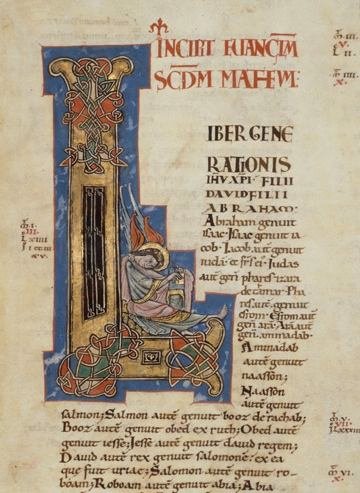 INCIPT EUANGELM
SCDM MATHEVM:
IBER GENE
RATIONIS
IHV XPI FILII
DAVID FILII
ABRAHAM
Abraham genuit
isac. Isaac genuit ia
cob. Iacob autē genuit
iudā. et frs eī. Iudas
autē geñ phares. zara
de thamar. Pha
res autē genuit
esrom. Esrom autē
geñ arā. Arā autē
geñ aminadab.
Aminadab
autē genuit
naasson;
Naasson
autē genuit
salmon; Salmon autē genuit booz de rachab;
Booz autē genuit obed ex ruth; Obed autē
genuit iesse; Iesse autē genuit david regem;
David autē rex genuit salomonē. ex ea
que fuit uriae; Salomon autē genuit ro-
boam; Roboam autē genuit abia; Abia